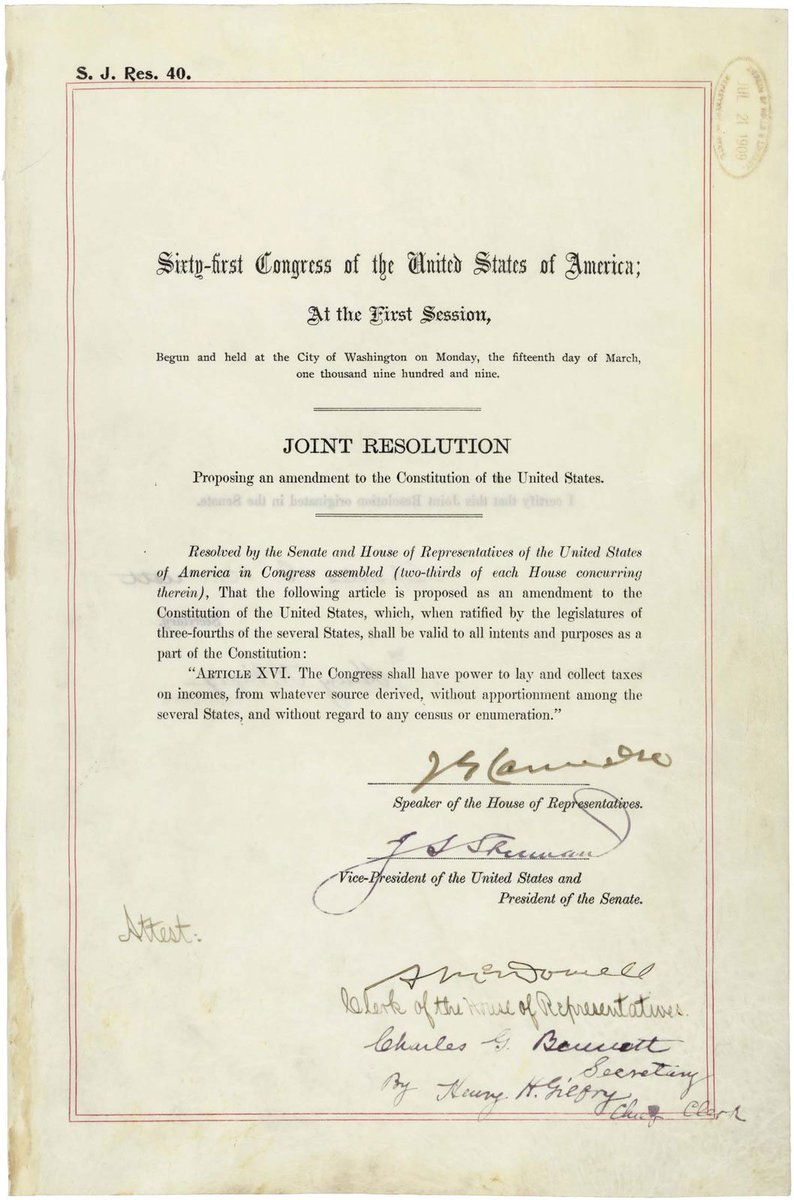 S. J. Res. 40.
JUL 21 1909
Sixty-first Congress of the United States of America;
At the First Session,
Begun and held at the City of Washington on Monday, the fifteenth day of March,
one thousand nine hundred and nine.
JOINT RESOLUTION
Proposing an amendment to the Constitution of the United States.
I certify that this Joint Resolution originated in the Senate.
Resolved by the Senate and House of Representatives of the United States
of America in Congress assembled (two-thirds of each House concurring
therein), That the following article is proposed as an amendment to the
Constitution of the United States, which, when ratified by the legislatures of
three-fourths of the several States, shall be valid to all intents and purposes as a
part of the Constitution:
"ARTICLE XVI. The Congress shall have power to lay and collect taxes
on incomes, from whatever source derived, without apportionment among the
several States, and without regard to any census or enumeration."
J G Cannon
Speaker of the House of Representatives.
J S Sherman
Vice-President of the United States and
President of the Senate.
Attest:
A McDowell
Clerk of the House of Representatives.
Charles G. Bennett
Secretary
By Henry H. Gilfry
Chief Clerk